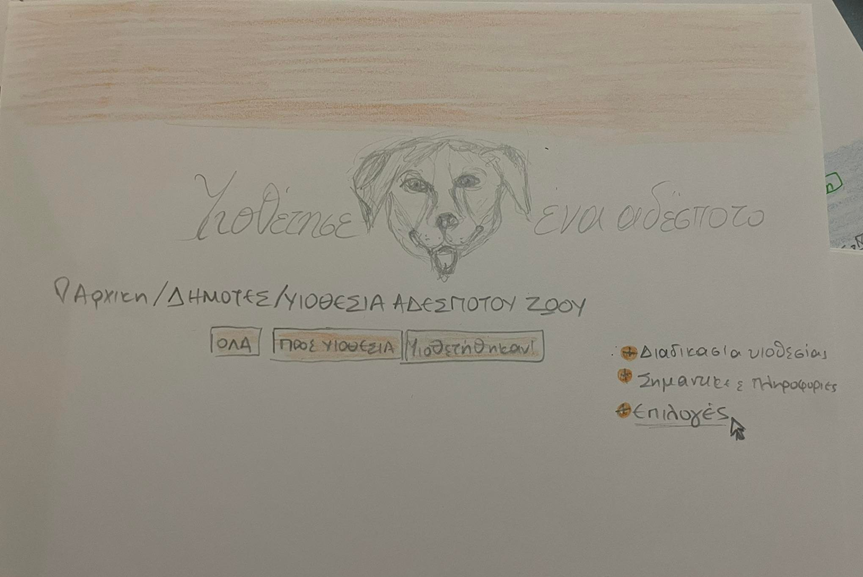 Υιοθέτησε ένα αδέσποτο
Αρχικη/ΔΗΜΟΤΕΣ/ΥΙΟΘΕΣΙΑ ΑΔΕΣΠΟΤΟΥ ΖΩΟΥ
ΟΛΑ ΠΡΟΣ ΥΙΟΘΕΣΙΑ Υιοθετήθηκαν!
+Διαδικασία υιοθεσίας
+Σημαντικές πληροφορίες
+Επιλογές